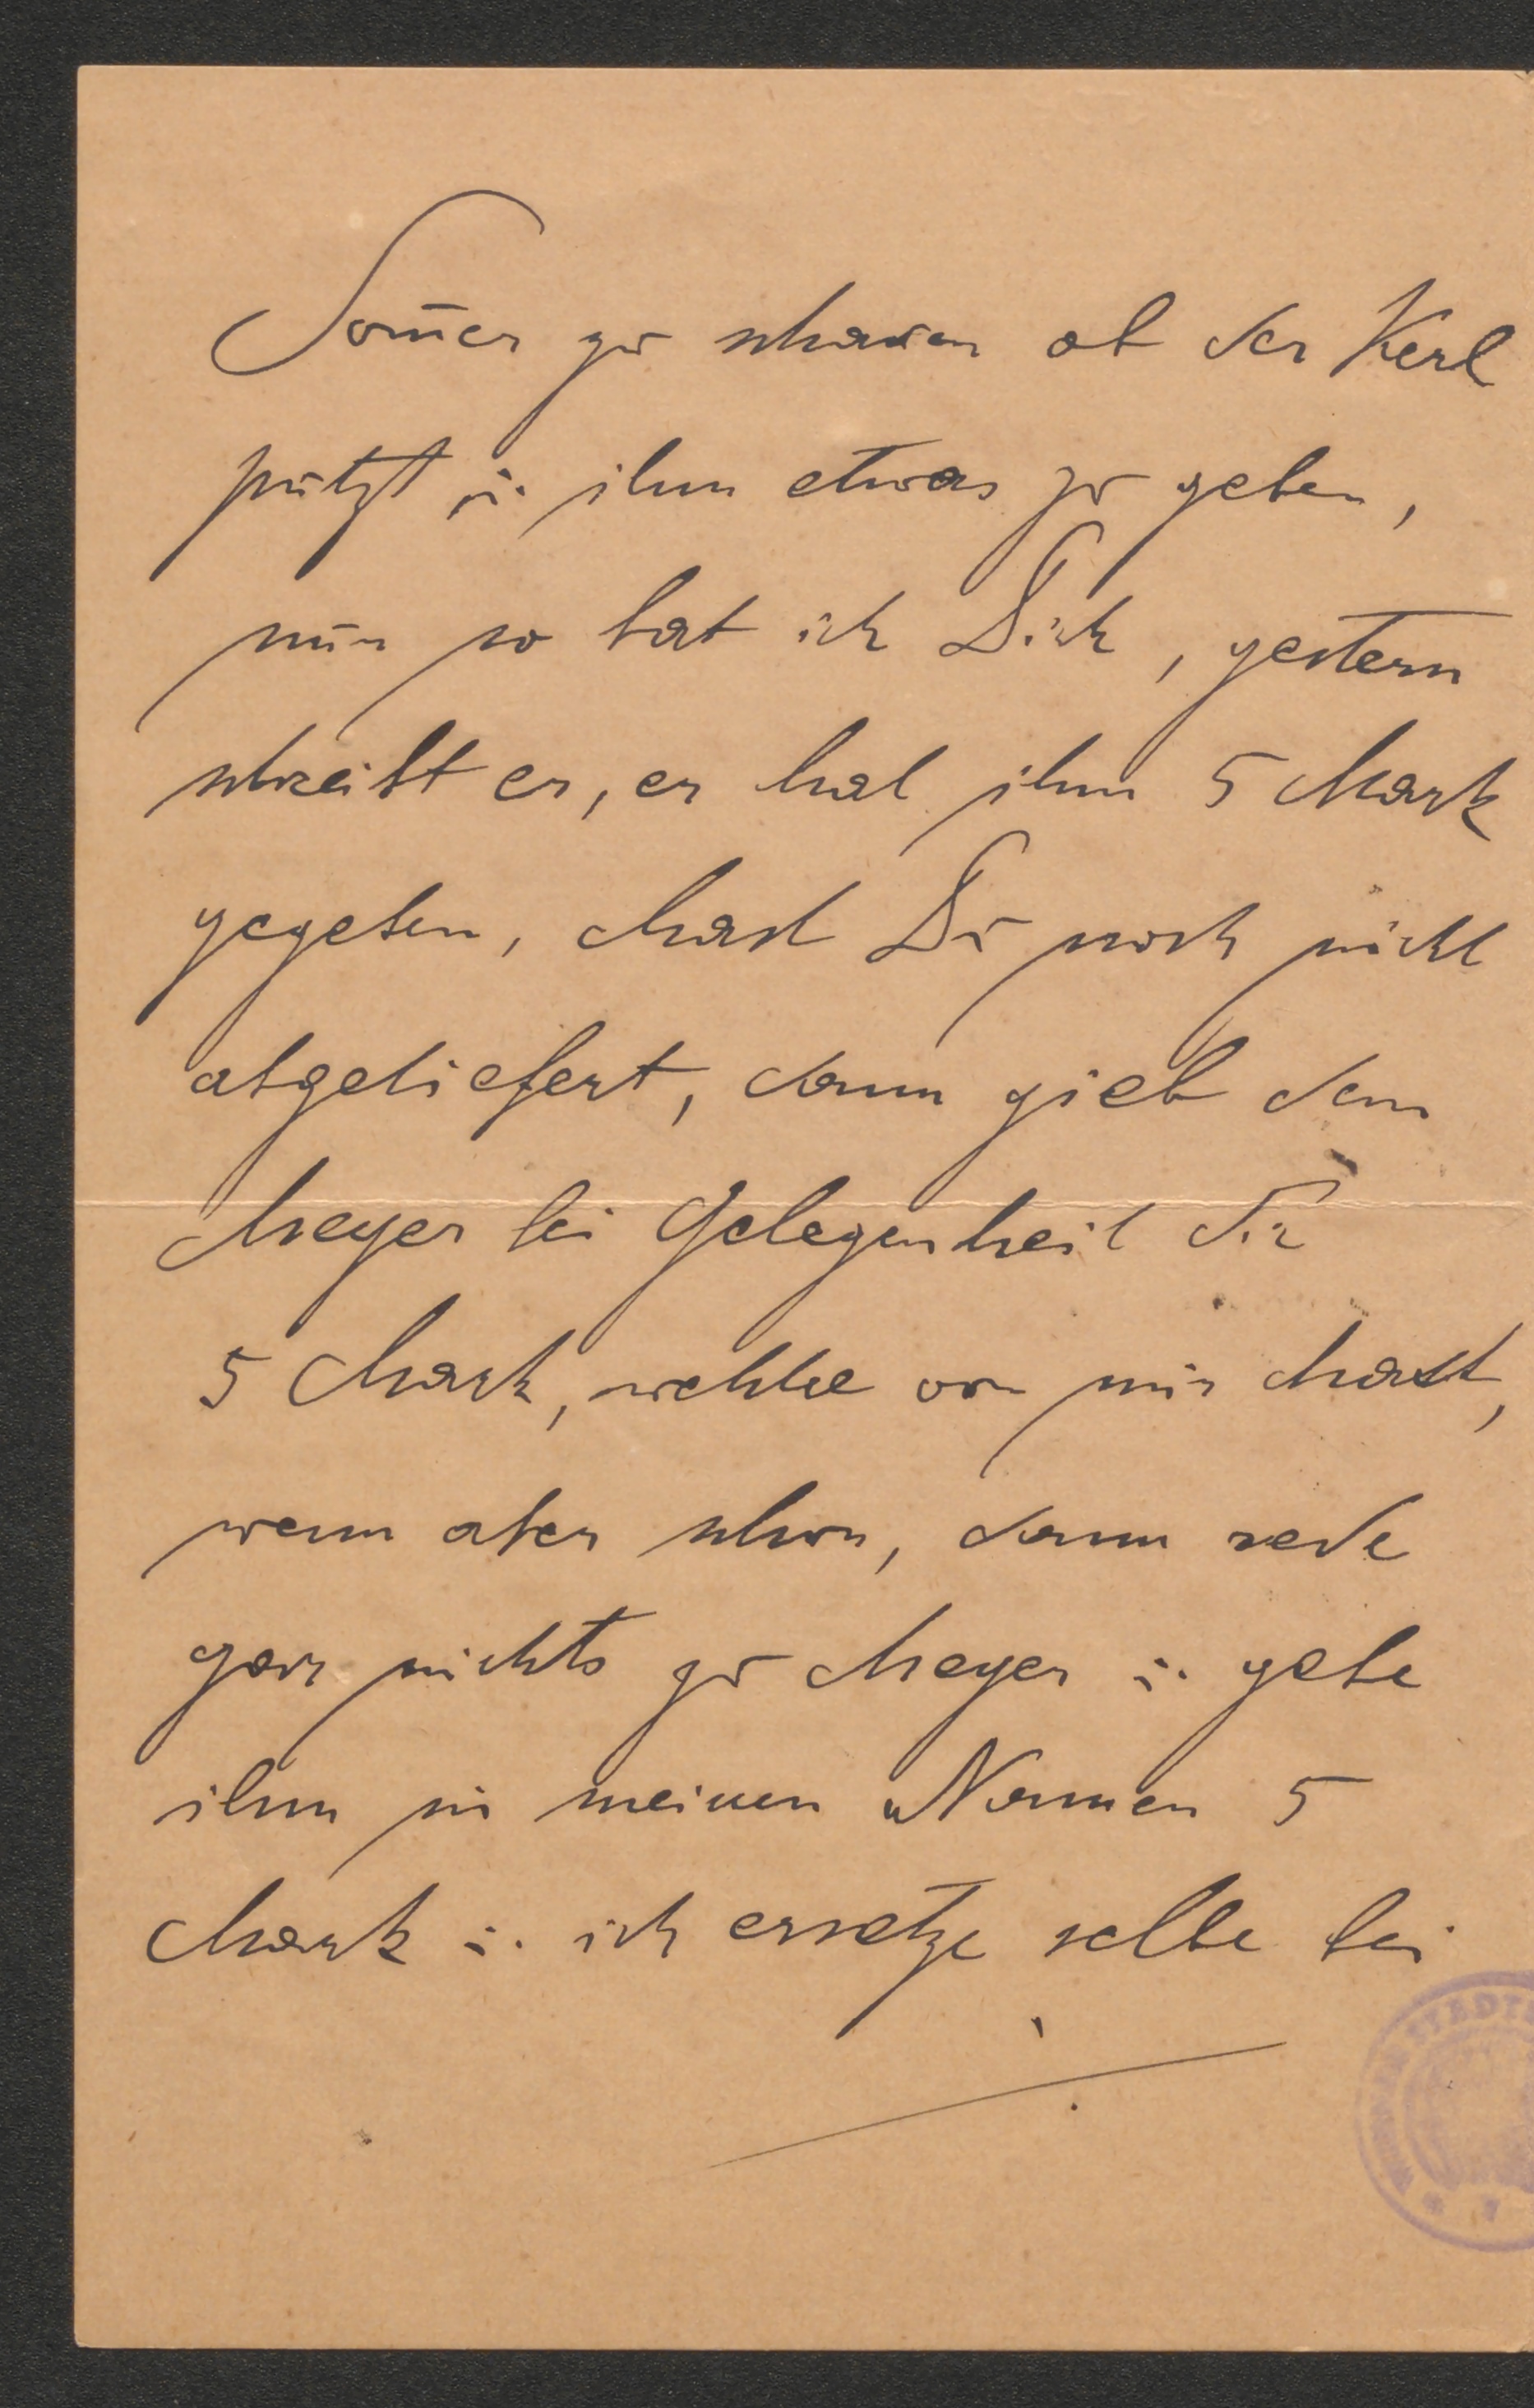 Som̄er zu schauen ob der Kerl
putzt u. ihm etwas zu geben,
nun so bat ich Dich, gestern
schreibt er, er hat ihm 5 Mark
gegeben, hast Du noch nicht
abgeliefert, dann gieb dem
Meyer bei Gelegenheit die
5 Mark, welche von mir hast,
wenn aber schon, dann rede
gar nichts zu Meyer u. gebe
ihm in meinen Namen 5
Mark u. ich ersetze selbe bei